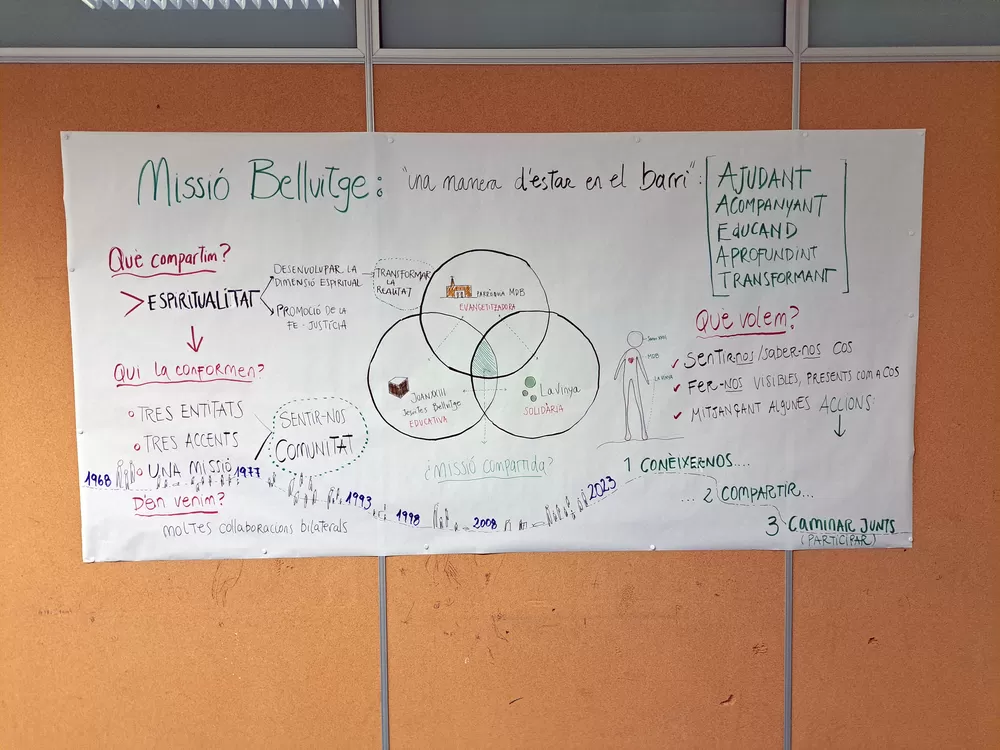 Missió Bellvitge: "una manera d'estar en el barri":
AJUDANT
ACOMPANYANT
EDUCAND
APROFUNDINT
TRANSFORMANT
Què compartim?
> ESPIRITUALITAT
DESENVOLUPAR LA
DIMENSIÓ ESPIRITUAL
TRANSFORMAR
LA
REALITAT
PROMOCIÓ DE LA
FE-JUSTÍCIA
QUI LA CONFORMEN?
TRES ENTITATS
TRES ACCENTS
UNA MISSIÓ
SENTIR-NOS
COMUNITAT
PARRÒQUIA MDB
EVANGETITZADORA
JOAN XXIII
Jesuïtes Bellvitge
EDUCATIVA
La Vinya
SOLIDÀRIA
¿MISSIÓ COMPARTIDA?
QUE VOLEM?
MDB
LA VINYA
SENTIR-NOS/SABER-NOS COS
FER-NOS VISIBLES, PRESENTS COM A COS
MITJANÇANT ALGUNES ACCIONS:
1 CONÈIXER-NOS....
... 2 COMPARTIR...
3 CAMINAR JUNTS
(PARTICIPAR)
1968
1977
1993
1998
2008
2023
D'ON VENIM?
MOLTES COLLABORACIONS BILATERALS